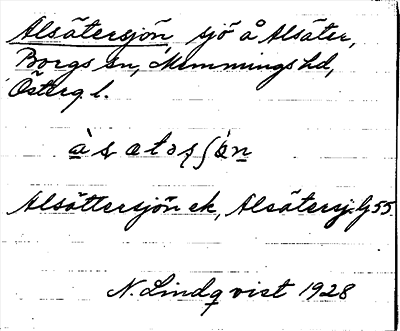 Alsätersjön sjö å Alsäter,
Borgs sn, Memmings hd,
Österg. l.
Alsättersjön ek, Alsätersj. Gj 55.
N. Lindqvist 1928